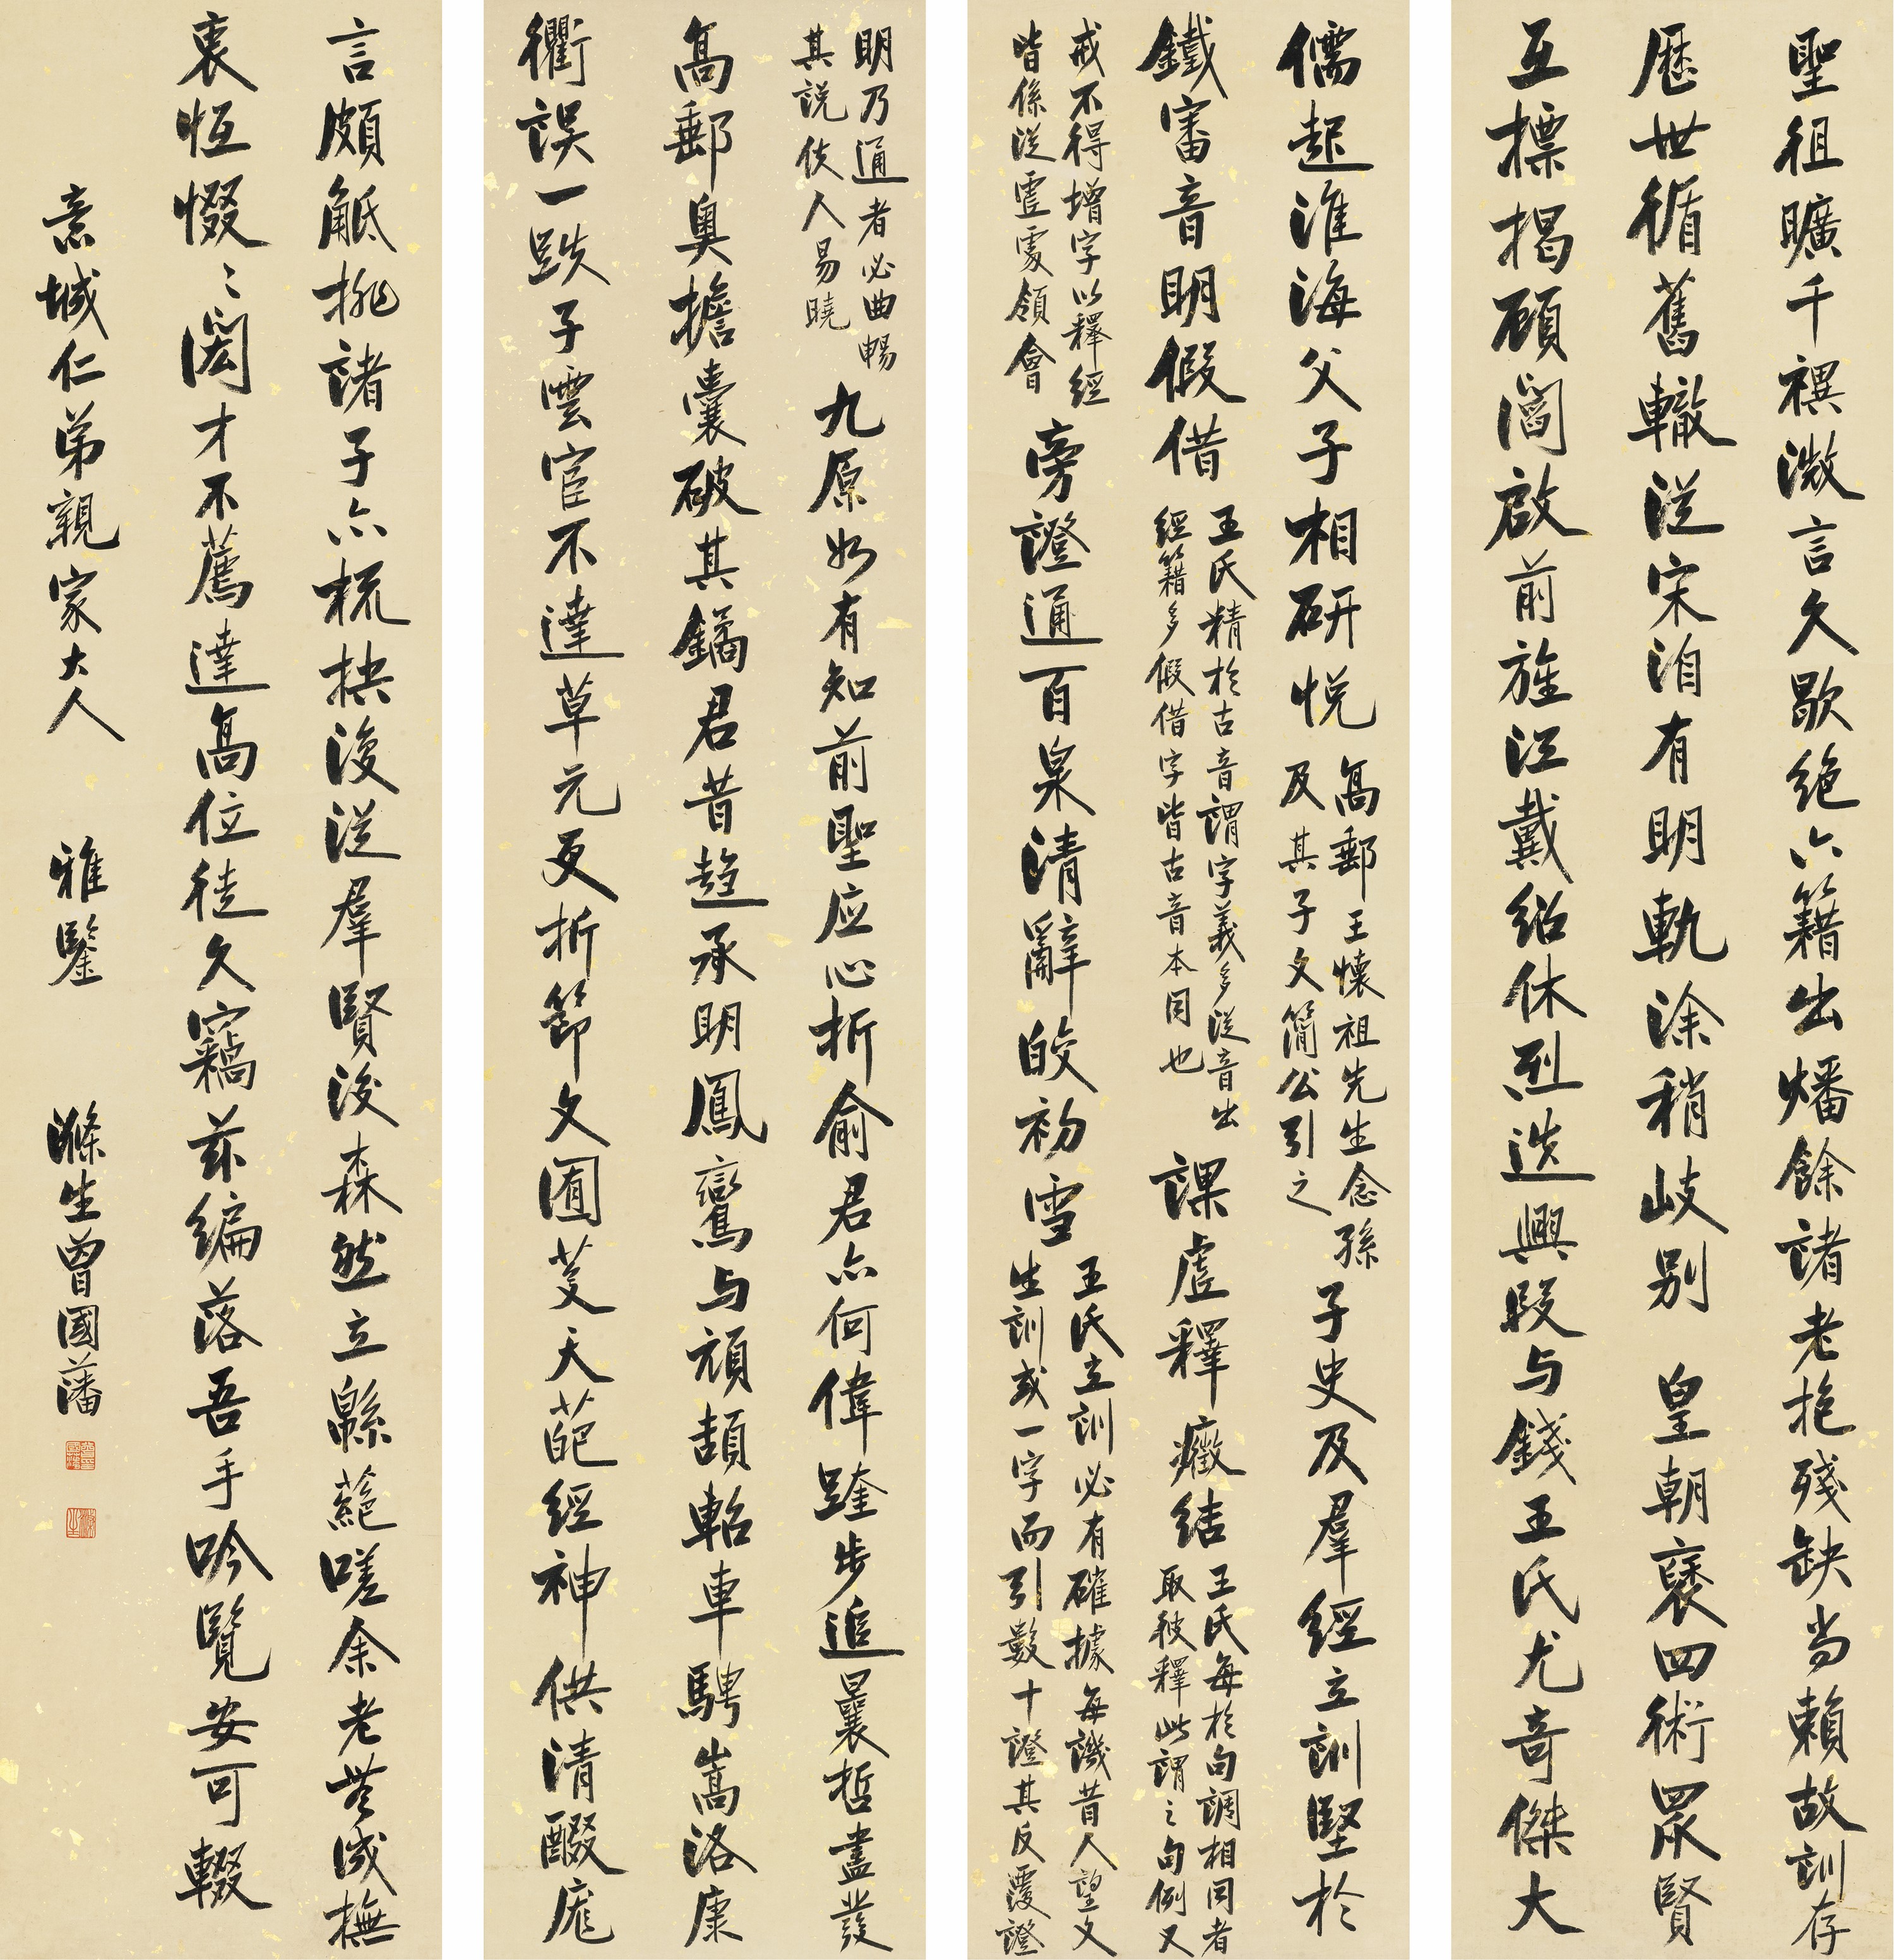 聖祖曠千禩微言久歇絕六籍出燔餘諸老抱殘缺尚賴故訓存
歷世循舊轍從宋洎有明軌涂稍岐別 皇朝褒四術眾賢
互摽揭顧閻啟前旌江戴紹休烈迭興段与錢王氏尤奇傑大
儒起淮海父子相研悅
高郵王懷祖先生念孫
及其子文簡公引之
子史及羣經立訓堅於
鐵審音明假借
王氏精於古音謂字義多從音出
經籍多假借字皆古音本同也
課虛釋癥結
王氏每於句調相同者
取彼釋此謂之句例又
戒不得增字以釋經
皆係從虛處領會
旁證通百泉清辭皎初雪
王氏立訓必有確據每譏昔人望文
生訓或一字而引數十證其反覆證
明乃通者必曲暢
其說使人易曉
九原如有知前聖应心折俞君亦何偉跬步追曩哲盡發
高郵奧擔囊破其鐍君昔趨承明鳳鸞与頏頡軺車騁嵩洛康
衢誤一跌子雲宦不達草元更折節文囿芟天葩經神供清醊庬
言頗觝排諸子亦梳抉復從羣賢後森然立緜蕝嗟余老無成撫
衷恆惙〻閎才不薦達高位徒久竊茲編落吾手吟覽安可輟
意城仁弟親家大人 雅鑒 滌生曾國藩